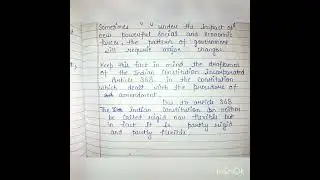 Sometimes " " under the impact of
new powerful social and economic
forces, the pattern of government
will require major changes.
Keep this fact in mind the draftsmen
of the Indian Constitution incorporated
Article 368 in the constitution
which dealt with the procedure of
amendment.
Due to article 368
The Indian constitution can neither
be called rigid nor flexible but
in fact it is partly rigid
and partly flexible